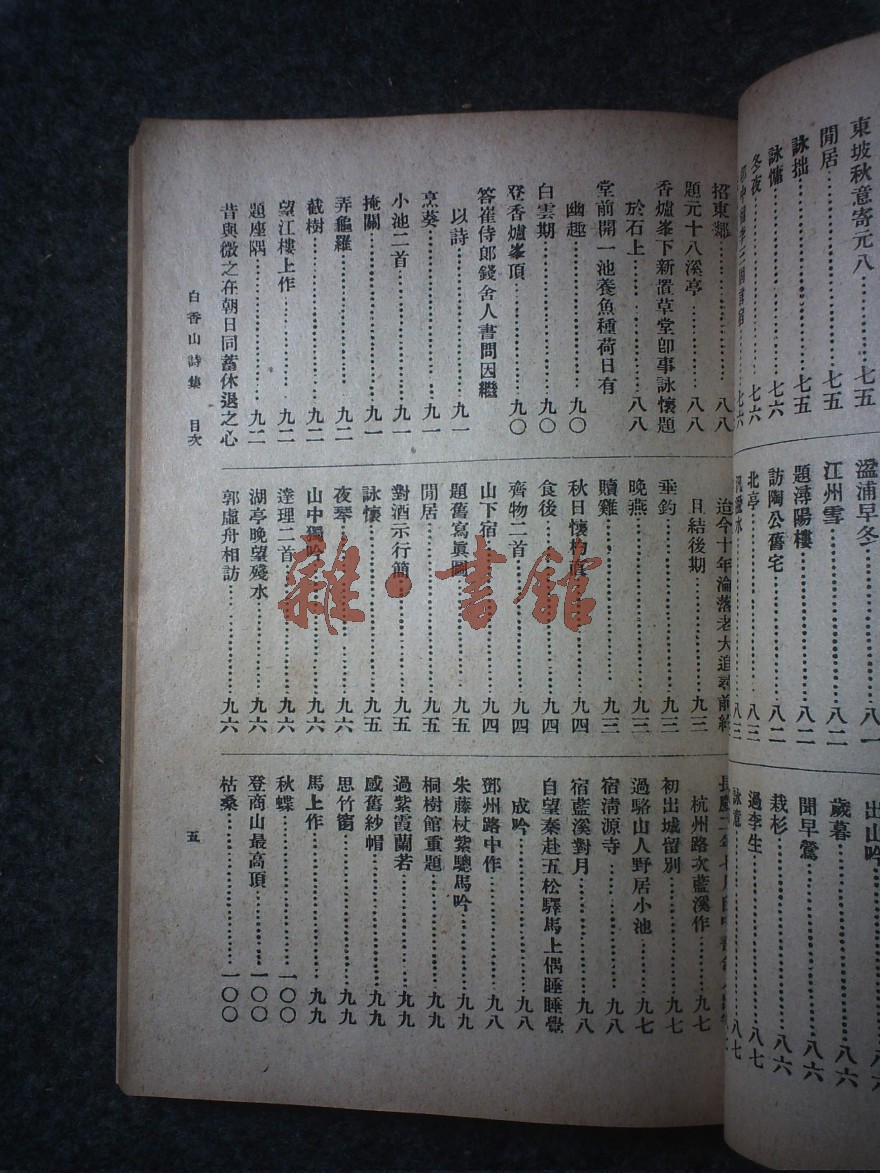 東坡秋意寄元八……七五
閒居……七五
詠拙……七五
詠慵……七六
冬夜……七六
湓浦早冬……八一
江州雪……八二
題潯陽樓……八二
訪陶公舊宅……八二
北亭……八三
出山吟……八六
歲暮……八六
聞早鶯……八六
栽杉……八六
過李生……八七
詠意……八七
招東鄰……八八
題元十八溪亭……八八
香爐峯下新置草堂卽事詠懷題
於石上……八八
堂前開一池養魚種荷日有
幽趣……九〇
白雲期……九〇
登香爐峯頂……九〇
答崔侍郎錢舍人書問因繼
以詩……九一
烹葵……九一
小池二首……九一
掩關……九一
弄龜羅……九二
截樹……九二
望江樓上作……九二
題座隅……九二
昔與微之在朝日同蓄休退之心
迨今十年淪落老大追尋前約
且結後期……九三
垂釣……九三
晚燕……九三
贖雞……九三
秋日懷杓直……九四
食後……九四
齊物二首……九四
山下宿……九四
題舊寫眞圖……九五
閒居……九五
對酒示行簡……九五
詠懷……九五
夜琴……九六
山中獨吟……九六
達理二首……九六
湖亭晚望殘水……九六
郭虛舟相訪……九六
杭州路次藍溪作……九七
初出城留別……九七
過駱山人野居小池……九七
宿清源寺……九八
宿藍溪對月……九八
自望秦赴五松驛馬上偶睡睡覺
成吟……九八
鄧州路中作……九八
朱藤杖紫驄馬吟……九九
桐樹館重題……九九
過紫霞蘭若……九九
感舊紗帽……九九
思竹窗……九九
馬上作……九九
秋蝶……一〇〇
登商山最高頂……一〇〇
枯桑……一〇〇
白香山詩集 目次
五
雜·書館